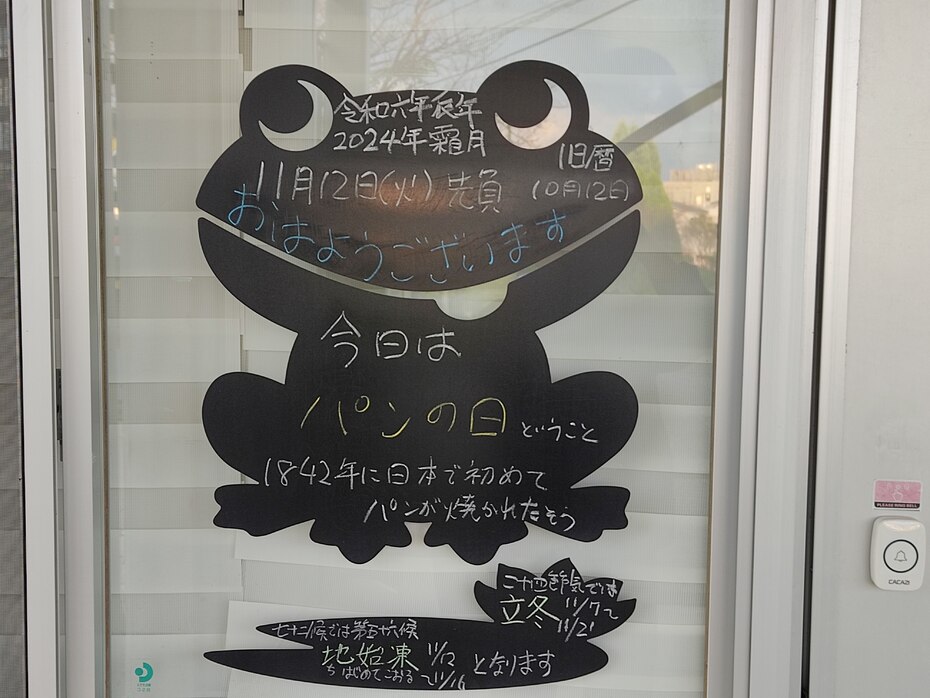 令和六年辰年
2024年霜月
旧暦
11月12日(火) 先負 10月12日
おはようございます
今日は
パンの日 ということ
1842年に日本で初めて
パンが焼かれたそう
二十四節気では
立冬 11/7〜
11/21
七十二候では第五十六候
地始凍 11/12 となります
ちはじめてこおる 〜11/16
PLEASE RING BELL
CACAZI